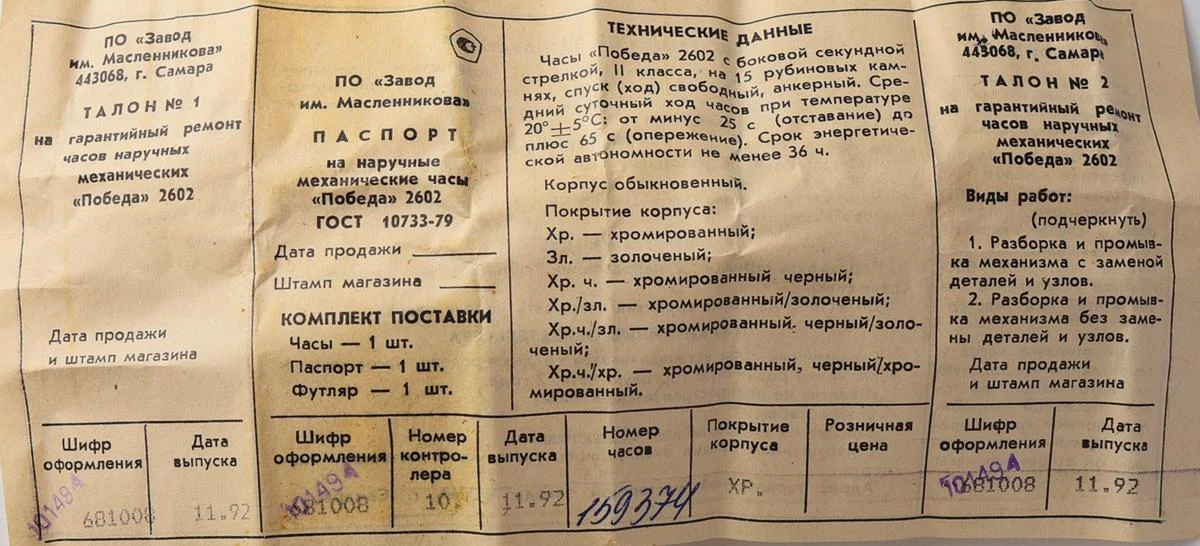 ПО «Завод
им. Масленникова»
443068, г. Самара
ТАЛОН № 1
на гарантийный ремонт
часов наручных
механических
«Победа» 2602
Дата продажи
и штамп магазина
Шифр
оформления
Дата
выпуска
101494
681008
11.92
ПО «Завод
им. Масленникова»
ПАСПОРТ
на наручные
механические часы
«Победа» 2602
ГОСТ 10733-79
Дата продажи
Штамп магазина
КОМПЛЕКТ ПОСТАВКИ
Часы — 1 шт.
Паспорт — 1 шт.
Футляр — 1 шт.
ТЕХНИЧЕСКИЕ ДАННЫЕ
Часы «Победа» 2602 с боковой секундной
стрелкой, II класса, на 15 рубиновых кам-
нях, спуск (ход) свободный, анкерный. Сре-
дний суточный ход часов при температуре
20°±5°С: от минус 25 с (отставание) до
плюс 65 с (опережение). Срок энергетиче-
ской автономности не менее 36 ч.
Корпус обыкновенный.
Покрытие корпуса:
Хр. — хромированный;
Зл. — золоченый;
Хр. ч. — хромированный черный;
Хр./зл. — хромированный/золоченый;
Хр.ч./зл. — хромированный, черный/золо-
ченый;
Хр.ч./хр. — хромированный, черный/хро-
мированный.
Шифр
оформления
Номер
контро-
лера
Дата
выпуска
Номер
часов
Покрытие
корпуса
Розничная
цена
101494
681008
10.
11.92
159374
ХР.
ПО «Завод
им. Масленникова»
443068, г. Самара
ТАЛОН № 2
на гарантийный ремонт
часов наручных
механических
«Победа» 2602
Виды работ:
(подчеркнуть)
1. Разборка и промыв-
ка механизма с заменой
деталей и узлов.
2. Разборка и промыв-
ка механизма без заме-
ны деталей и узлов.
Дата продажи
и штамп магазина
Шифр
оформления
Дата
выпуска
101494
681008
11.92